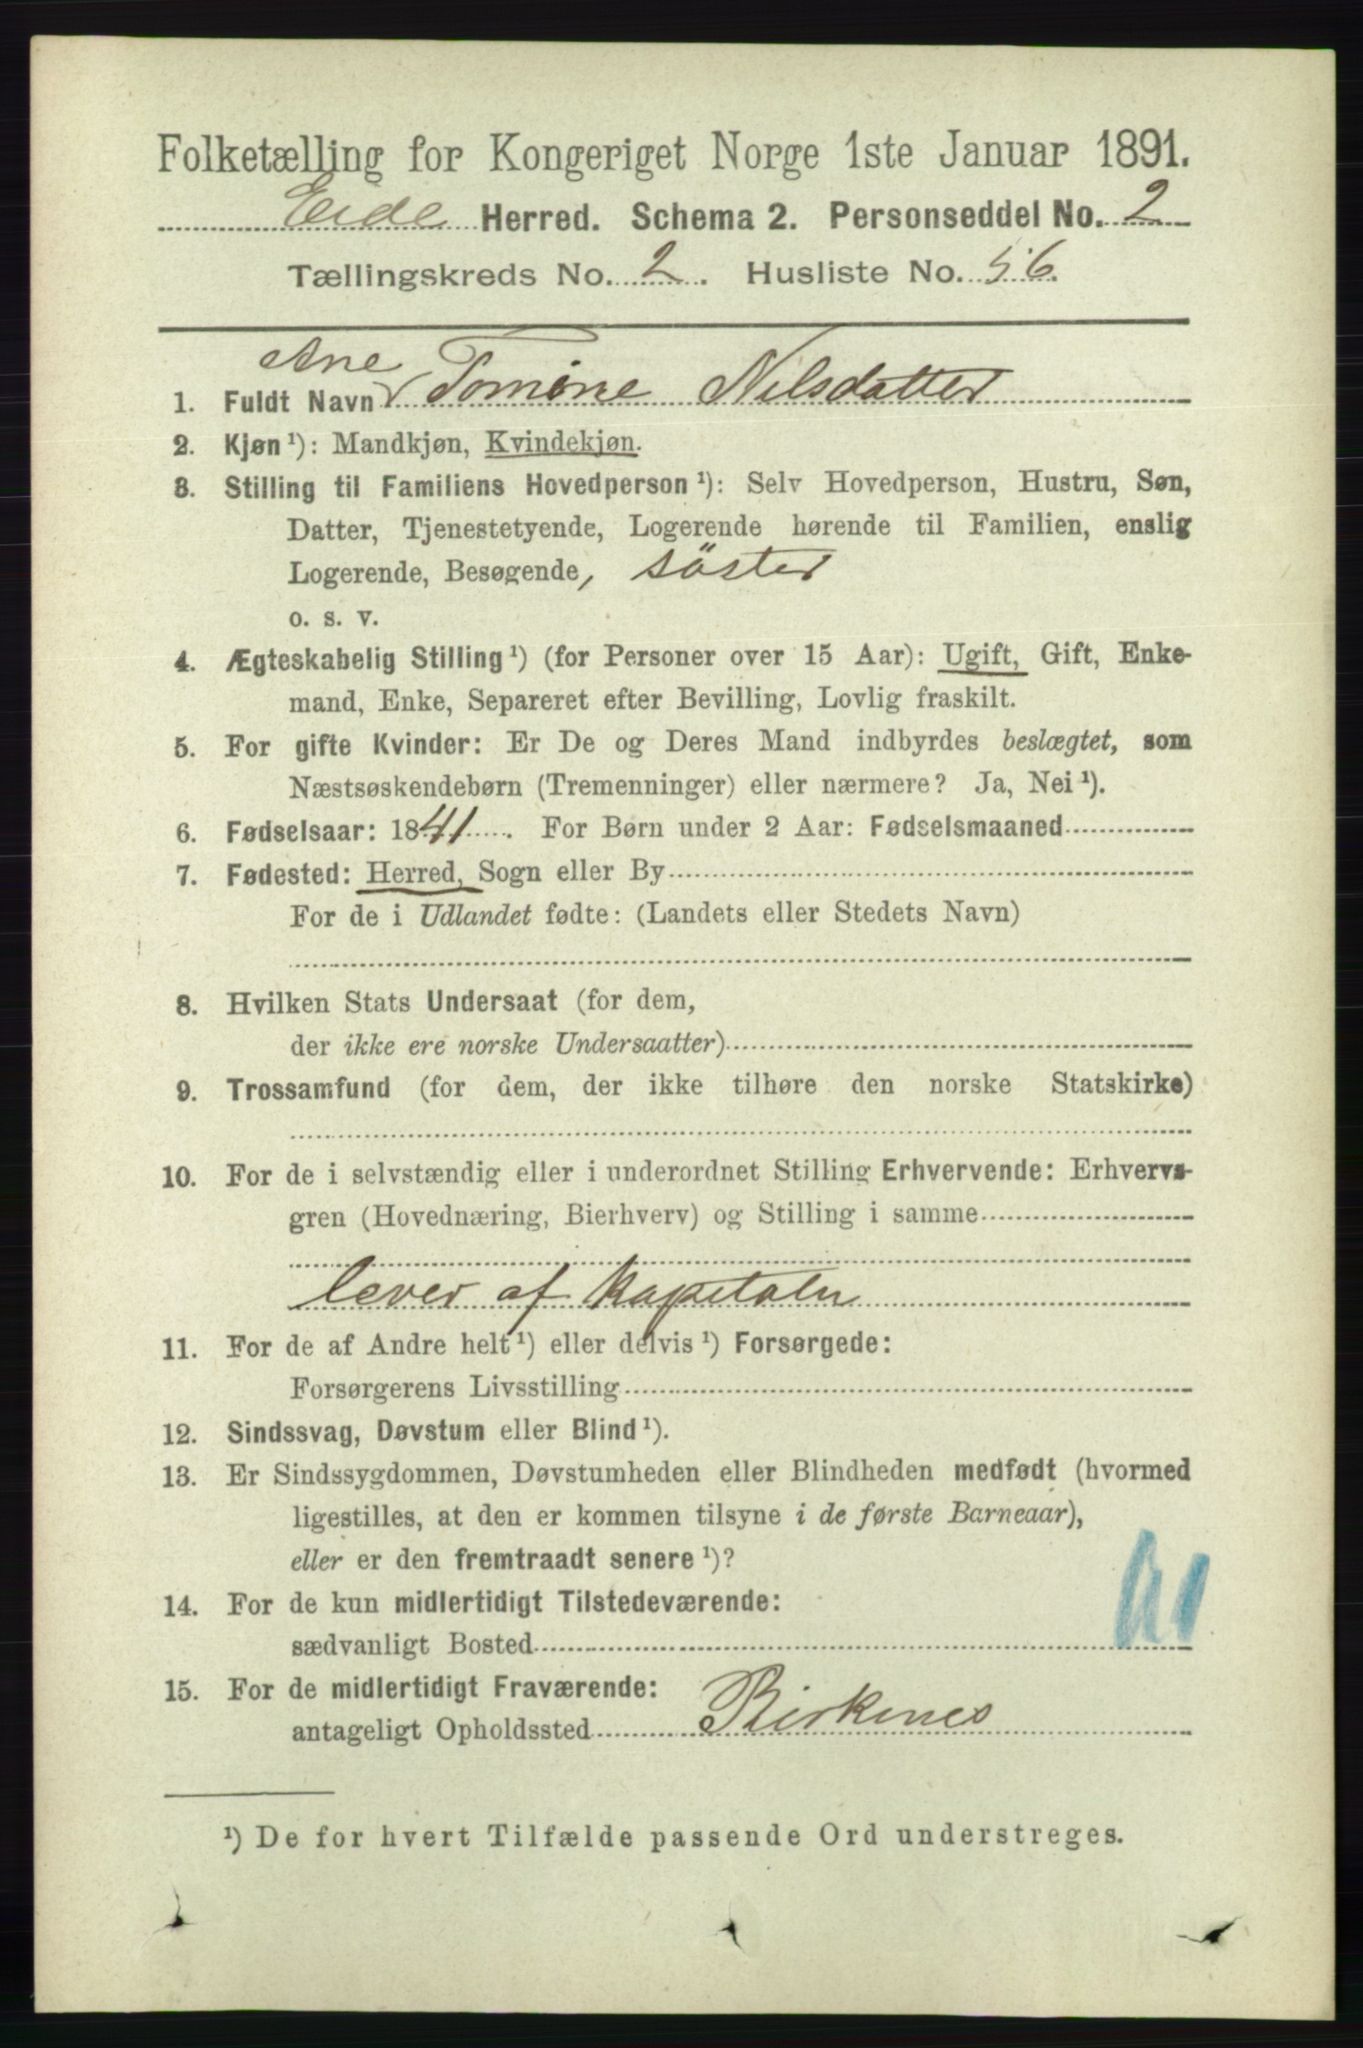 Folketælling for Kongeriget Norge 1ste Januar 1891.
Eide Herred. Schema 2. Personseddel No. 2
Tællingskreds No. 2. Husliste No. 56.
Ane
1. Fuldt Navn Tomine Nilsdatter
2. Kjøn ¹): Mandkjøn, Kvindekjøn.
3. Stilling til Familiens Hovedperson ¹): Selv Hovedperson, Hustru, Søn,
Datter, Tjenestetyende, Logerende hørende til Familien, enslig
Logerende, Besøgende, söster
o. s. v.
4. Ægteskabelig Stilling ¹) (for Personer over 15 Aar): Ugift, Gift, Enke-
mand, Enke, Separeret efter Bevilling, Lovlig fraskilt.
5. For gifte Kvinder: Er De og Deres Mand indbyrdes beslægtet, som
Næstsøskendebørn (Tremenninger) eller nærmere? Ja, Nei ¹).
6. Fødselsaar: 1841. For Børn under 2 Aar: Fødselsmaaned
7. Fødested: Herred, Sogn eller By
For de i Udlandet fødte: (Landets eller Stedets Navn)
8. Hvilken Stats Undersaat (for dem,
der ikke ere norske Undersaatter)
9. Trossamfund (for dem, der ikke tilhøre den norske Statskirke)
10. For de i selvstændig eller i underordnet Stilling Erhvervende: Erhvervs-
gren (Hovednæring, Bierhverv) og Stilling i samme
lever af kapitaler
11. For de af Andre helt ¹) eller delvis ¹) Forsørgede:
Forsørgerens Livsstilling
12. Sindssvag, Døvstum eller Blind ¹).
13. Er Sindssygdommen, Døvstumheden eller Blindheden medfødt (hvormed
ligestilles, at den er kommen tilsyne i de første Barneaar),
eller er den fremtraadt senere ¹)?
14. For de kun midlertidigt Tilstedeværende:
sædvanligt Bosted
15. For de midlertidigt Fraværende:
antageligt Opholdssted Birkenes
¹) De for hvert Tilfælde passende Ord understreges.